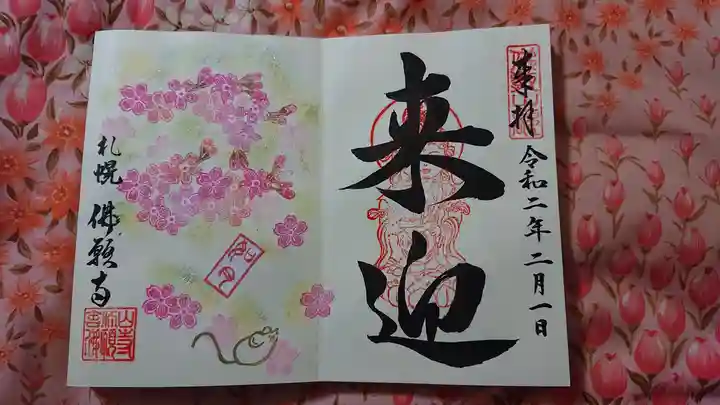 奉拝
令和二年二月一日
来迎
札幌 佛願寺